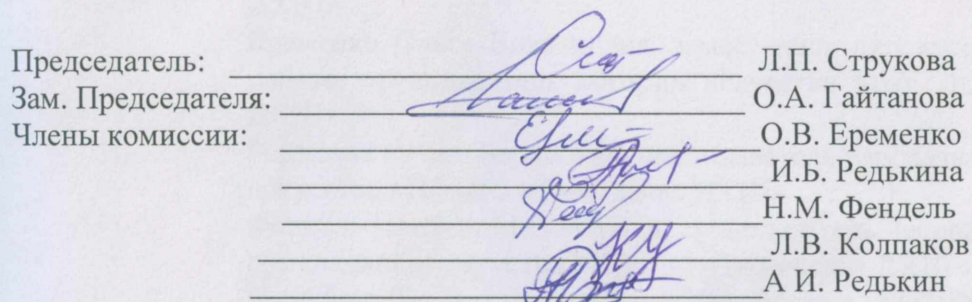 Председатель: Л.П. Струкова
Зам. Председателя: О.А. Гайтанова
Члены комиссии: О.В. Еременко
И.Б. Редькина
Н.М. Фендель
Л.В. Колпаков
А И. Редькин